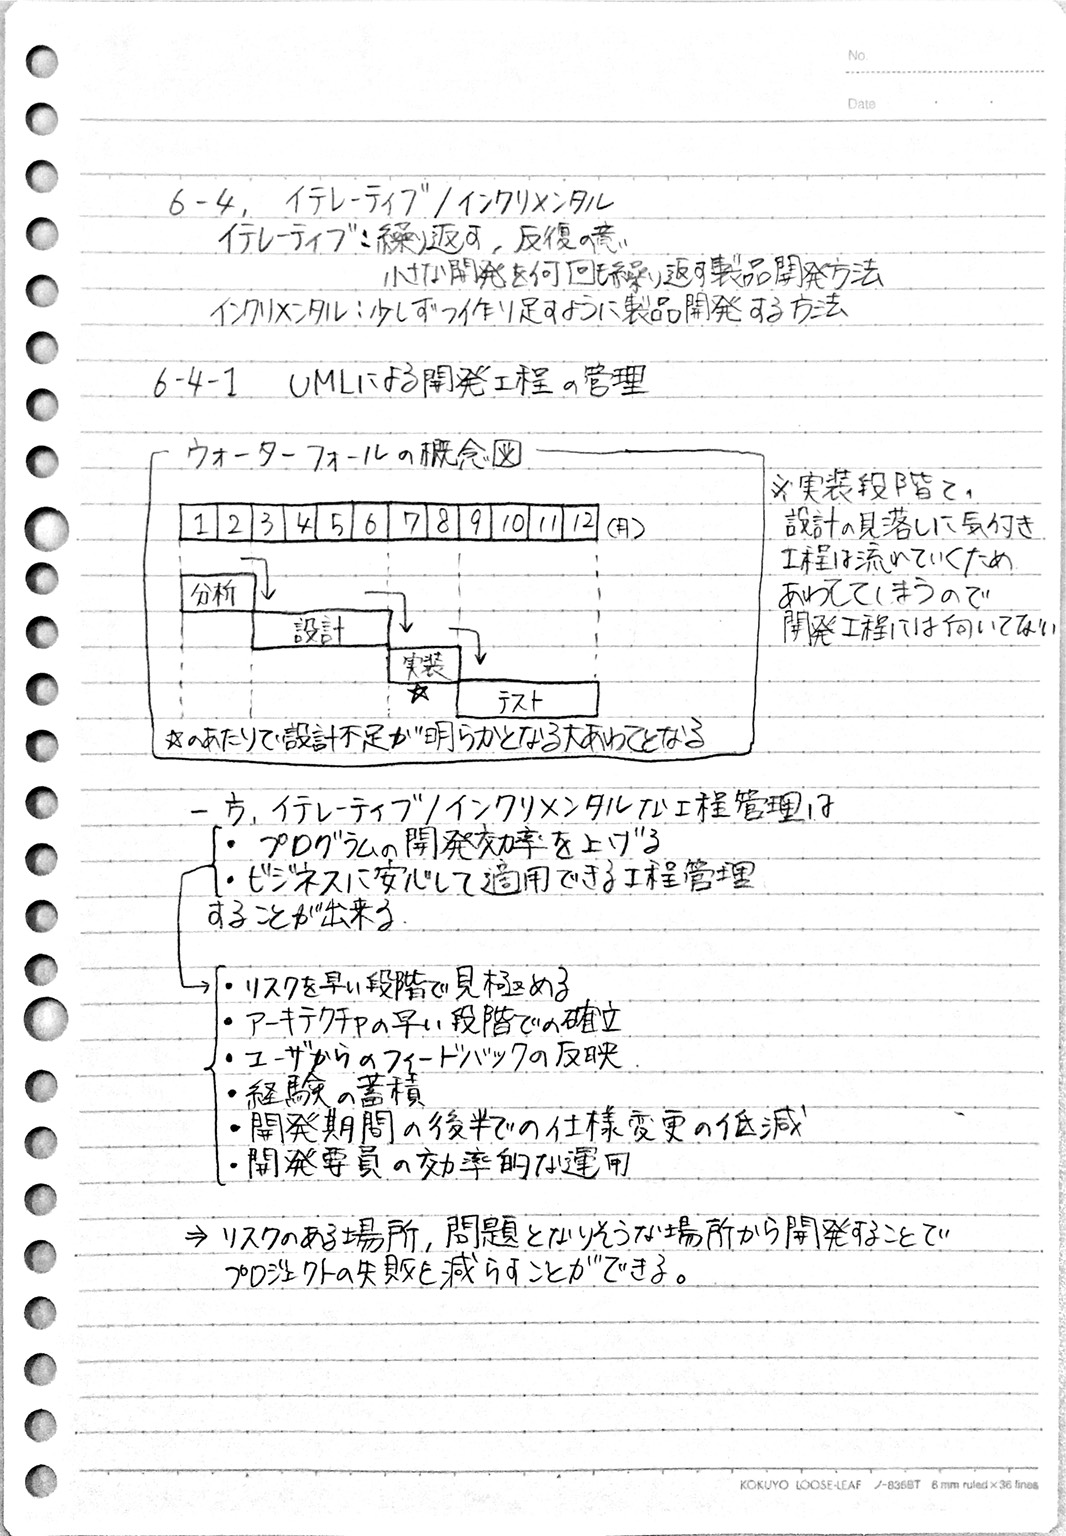 No.
Date
6-4. イテレーティブ/インクリメンタル
イテレーティブ:繰り返す, 反復の意
小さな開発を何回も繰り返す製品開発方法
インクリメンタル:少しずつ作り足すように製品開発する方法
6-4-1 UMLによる開発工程の管理
ウォーターフォールの概念図
1 2 3 4 5 6 7 8 9 10 11 12 (月)
分析
設計
実装
☆
テスト
☆のあたりで設計不足が明らかとなる大あわてとなる
※実装段階で,
設計の見落しに気付き
工程は流れていくため
あわててしまうので
開発工程には向いてない
一方, イテレーティブ/インクリメンタルな工程管理は
・プログラムの開発効率を上げる
・ビジネスに安心して適用できる工程管理
することが出来る.
・リスクを早い段階で見極める
・アーキテクチャの早い段階での確立
・ユーザからのフィードバックの反映
・経験の蓄積
・開発期間の後半での仕様変更の低減
・開発要員の効率的な運用
⇒ リスクのある場所, 問題となりそうな場所から開発することで
プロジェクトの失敗を減らすことができる。
KOKUYO LOOSE-LEAF ノ-836BT 6 mm ruled×36 lines